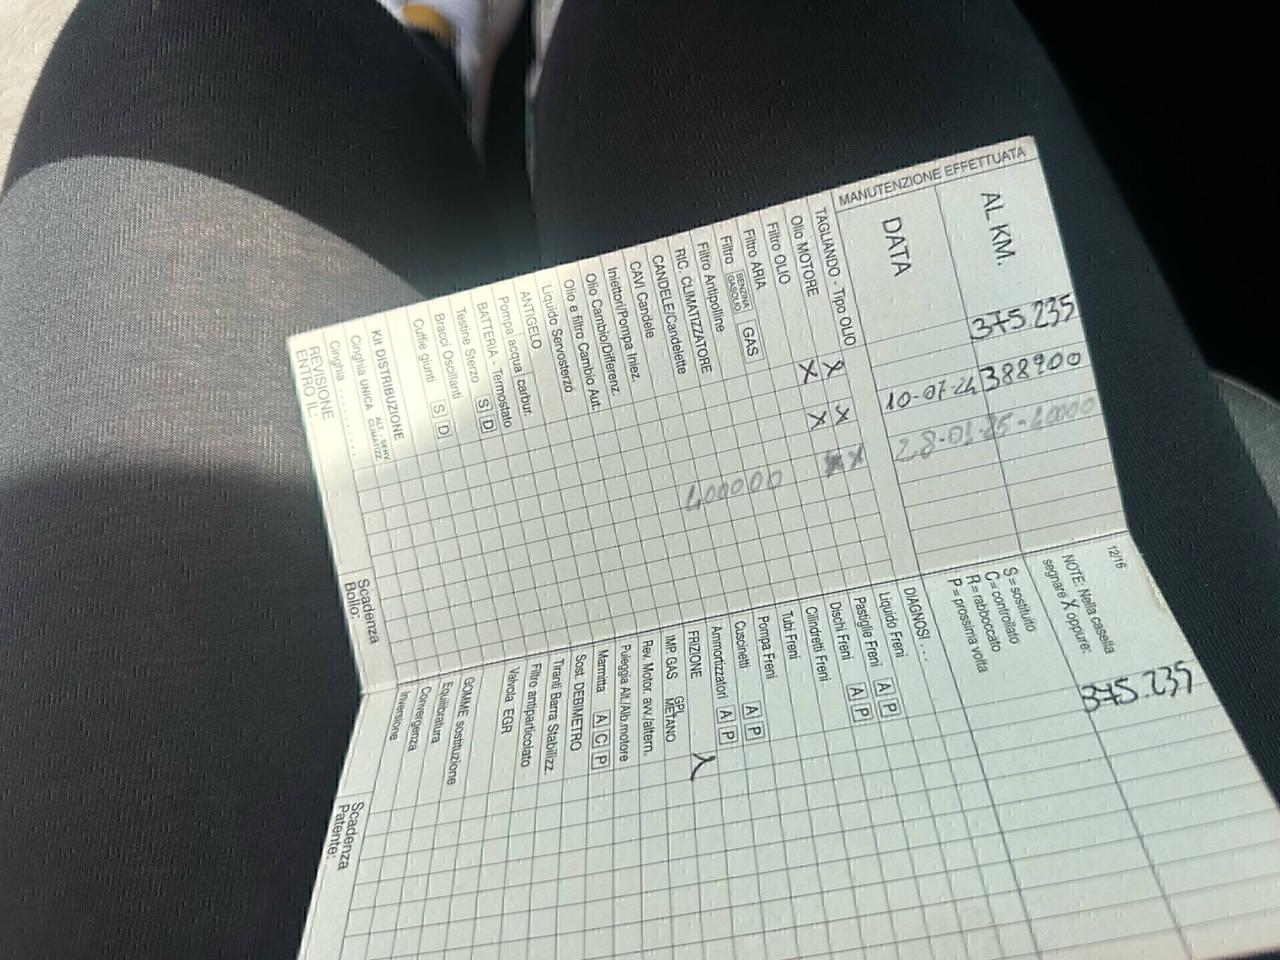 MANUTENZIONE EFFETTUATA
AL KM.
375.235
388900
DATA
10-07-24
TAGLIANDO - Tipo OLIO X X
Olio MOTORE X X
Filtro OLIO
Filtro ARIA
Filtro BENZINA GASOLIO GAS
Filtro Antipolline
RIC. CLIMATIZZATORE
CANDELE/Candelette
CAVI Candele
Iniettori/Pompa Iniez.
Olio Cambio/Differenz.
Olio e filtro Cambio Aut.
Liquido Servosterzo
ANTIGELO
Pompa acqua carbur.
BATTERIA - Termostato
Testine Sterzo S D
Bracci Oscillanti
Cuffie giunti S D
Kit DISTRIBUZIONE
Cinghia UNICA ALT. - SERV. CLIMATIZZ.
Cinghia ..........
REVISIONE
ENTRO IL:
Scadenza
Bollo:
12/16
NOTE: Nella casella
segnare X oppure:
S = sostituito
C = controllato
R = rabboccato
P = prossima volta
375.235
DIAGNOSI . . .
Liquido Freni
Pastiglie Freni A P
Dischi Freni A P
Cilindretti Freni
Tubi Freni
Pompa Freni
Cuscinetti A P
Ammortizzatori A P
FRIZIONE
IMP. GAS GPL METANO
Rev. Motor. avv./altern.
Puleggia Alt./Alb.motore
Marmitta A C P
Sost. DEBIMETRO
Tiranti Barra Stabilizz.
Filtro antiparticolato
Valvola EGR
GOMME sostituzione
Equilibratura
Convergenza
Inversione
Scadenza
Patente: